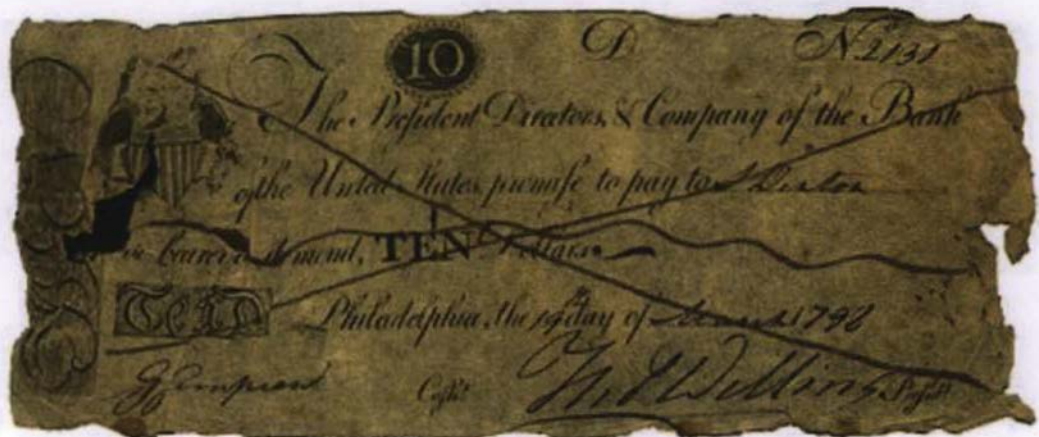 10 D No. 2131
The President Directors, & Company of the Bank
of the United States, promise to pay to
or bearer on demand, TEN Dollars
TEN Philadelphia, the day of 179
Cashr. Thos Willing, Presidt.